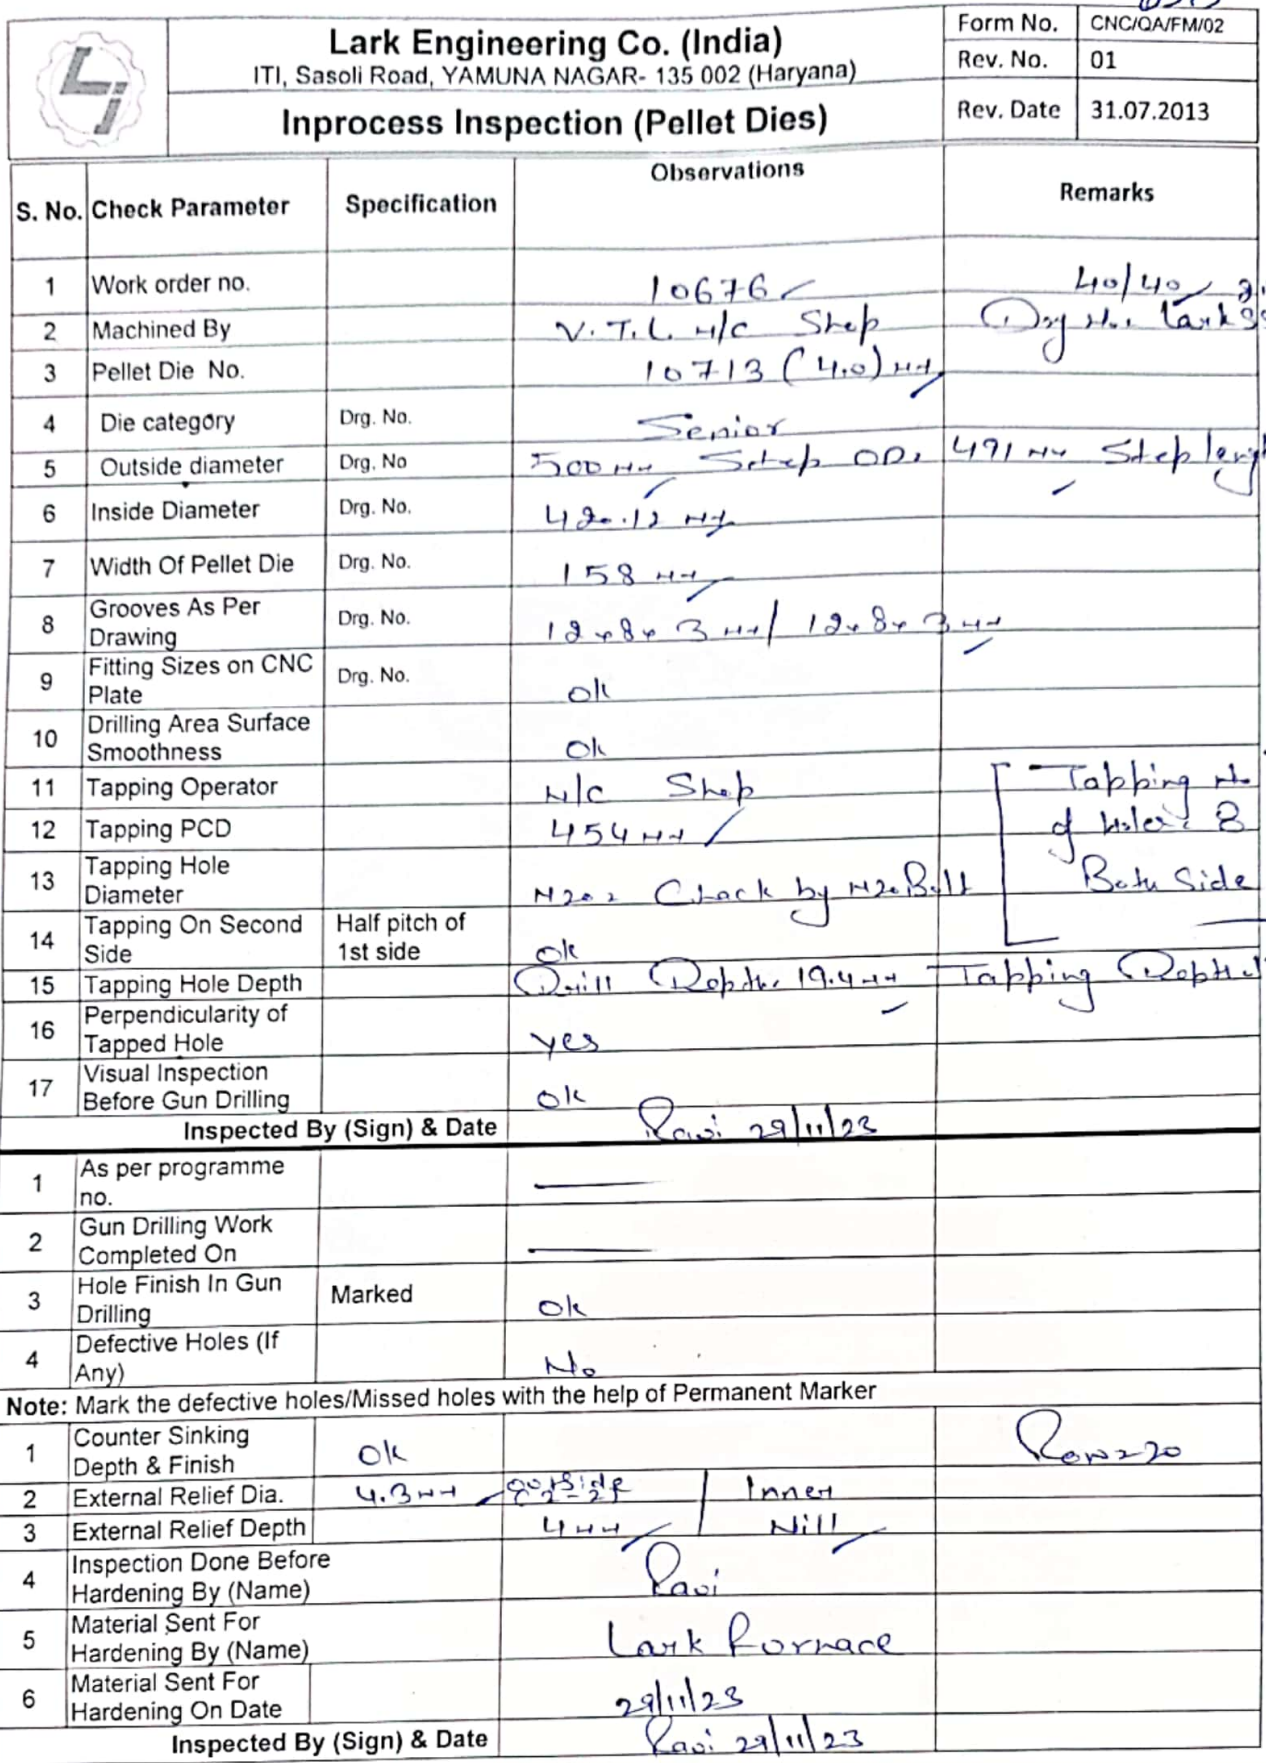 Lark Engineering Co. (India)
ITI, Sasoli Road, YAMUNA NAGAR- 135 002 (Haryana)
Inprocess Inspection (Pellet Dies)
Form No. CNC/QA/FM/02
Rev. No. 01
Rev. Date 31.07.2013
S. No. Check Parameter Specification Observations Remarks
1 Work order no. 10676 40/40
2 Machined By V.T.L. M/C Shop
3 Pellet Die No. 10713 (4.0) MM
4 Die category Drg. No. Senior
5 Outside diameter Drg. No 500 MM Step OD. 491 MM Step
6 Inside Diameter Drg. No. 420.12 MM
7 Width Of Pellet Die Drg. No. 158 MM
8 Grooves As Per Drawing Drg. No. 12x8x3 MM/ 12x8x3 MM
9 Fitting Sizes on CNC Plate Drg. No. Ok
10 Drilling Area Surface Smoothness Ok
11 Tapping Operator M/C Shop Tapping No
12 Tapping PCD 454 MM of Holes: 8
13 Tapping Hole Diameter M20 Check by M20 Bolt Both Side
14 Tapping On Second Side Half pitch of 1st side Ok
15 Tapping Hole Depth Drill Depth 19.4 MM Tapping Depth
16 Perpendicularity of Tapped Hole yes
17 Visual Inspection Before Gun Drilling Ok
Inspected By (Sign) & Date Ravi 29/11/23
1 As per programme no.
2 Gun Drilling Work Completed On
3 Hole Finish In Gun Drilling Marked Ok
4 Defective Holes (If Any) No
Note: Mark the defective holes/Missed holes with the help of Permanent Marker
1 Counter Sinking Depth & Finish Ok
2 External Relief Dia. 4.3 MM outside Inner
3 External Relief Depth 4 MM Nill
4 Inspection Done Before Hardening By (Name) Ravi
5 Material Sent For Hardening By (Name) Lark Fornace
6 Material Sent For Hardening On Date 29/11/23
Inspected By (Sign) & Date Ravi 29/11/23